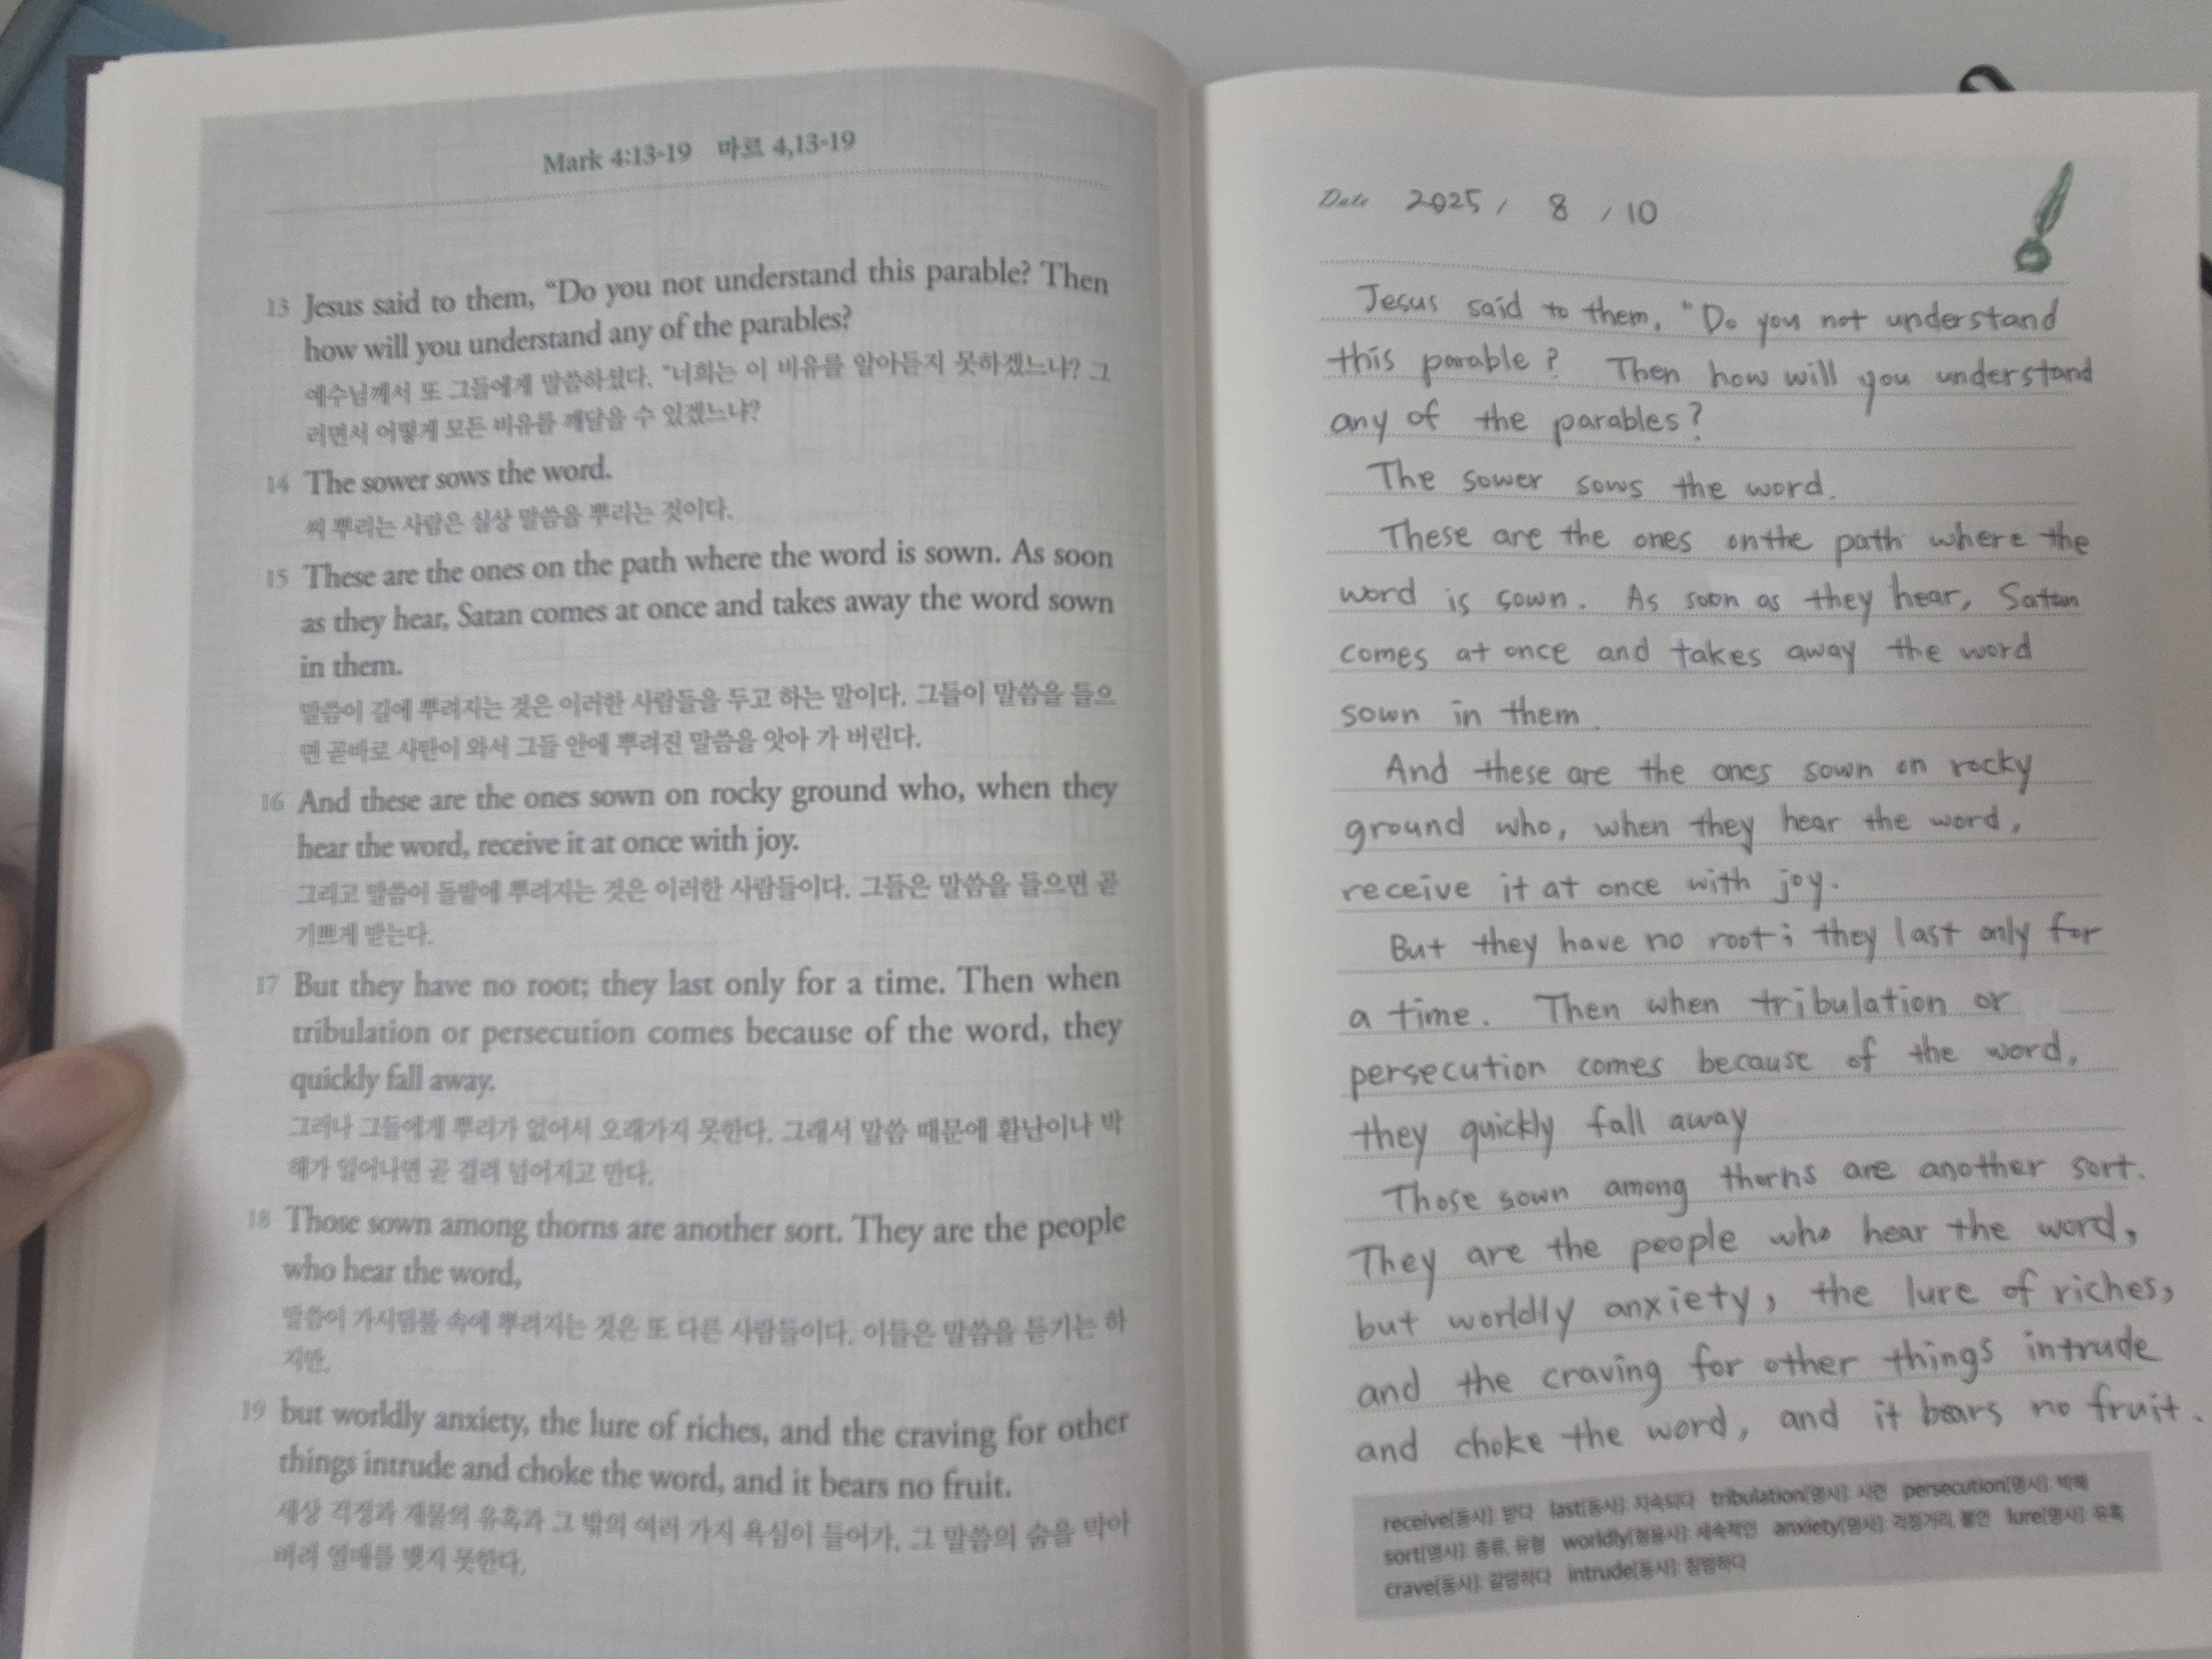 Mark 4:13-19 마르 4,13-19
13 Jesus said to them, “Do you not understand this parable? Then
how will you understand any of the parables?
예수님께서 또 그들에게 말씀하셨다. “너희는 이 비유를 알아듣지 못하겠느냐? 그
러면서 어떻게 모든 비유를 깨달을 수 있겠느냐?
14 The sower sows the word.
씨 뿌리는 사람은 실상 말씀을 뿌리는 것이다.
15 These are the ones on the path where the word is sown. As soon
as they hear, Satan comes at once and takes away the word sown
in them.
말씀이 길에 뿌려지는 것은 이러한 사람들을 두고 하는 말이다. 그들이 말씀을 들으
면 곧바로 사탄이 와서 그들 안에 뿌려진 말씀을 앗아 가 버린다.
16 And these are the ones sown on rocky ground who, when they
hear the word, receive it at once with joy.
그리고 말씀이 돌밭에 뿌려지는 것은 이러한 사람들이다. 그들은 말씀을 들으면 곧
기쁘게 받는다.
17 But they have no root; they last only for a time. Then when
tribulation or persecution comes because of the word, they
quickly fall away.
그러나 그들에게 뿌리가 없어서 오래가지 못한다. 그래서 말씀 때문에 환난이나 박
해가 일어나면 곧 걸려 넘어지고 만다.
18 Those sown among thorns are another sort. They are the people
who hear the word,
말씀이 가시덤불 속에 뿌려지는 것은 또 다른 사람들이다. 이들은 말씀을 듣기는 하
지만,
19 but worldly anxiety, the lure of riches, and the craving for other
things intrude and choke the word, and it bears no fruit.
세상 걱정과 재물의 유혹과 그 밖의 여러 가지 욕심이 들어가, 그 말씀의 숨을 막아
버려 열매를 맺지 못한다.
Date 2025 / 8 / 10
Jesus said to them, “Do you not understand
this parable? Then how will you understand
any of the parables?
The sower sows the word.
These are the ones on the path where the
word is sown. As soon as they hear, Satan
comes at once and takes away the word
sown in them.
And these are the ones sown on rocky
ground who, when they hear the word,
receive it at once with joy.
But they have no root; they last only for
a time. Then when tribulation or
persecution comes because of the word,
they quickly fall away
Those sown among thorns are another sort.
They are the people who hear the word,
but worldly anxiety, the lure of riches,
and the craving for other things intrude
and choke the word, and it bears no fruit.
receive[동사]: 받다 last[동사]: 지속되다 tribulation[명사]: 시련 persecution[명사]: 박해
sort[명사]: 종류, 유형 worldly[형용사]: 세속적인 anxiety[명사]: 걱정거리, 불안 lure[명사]: 유혹
crave[동사]: 갈망하다 intrude[동사]: 침범하다